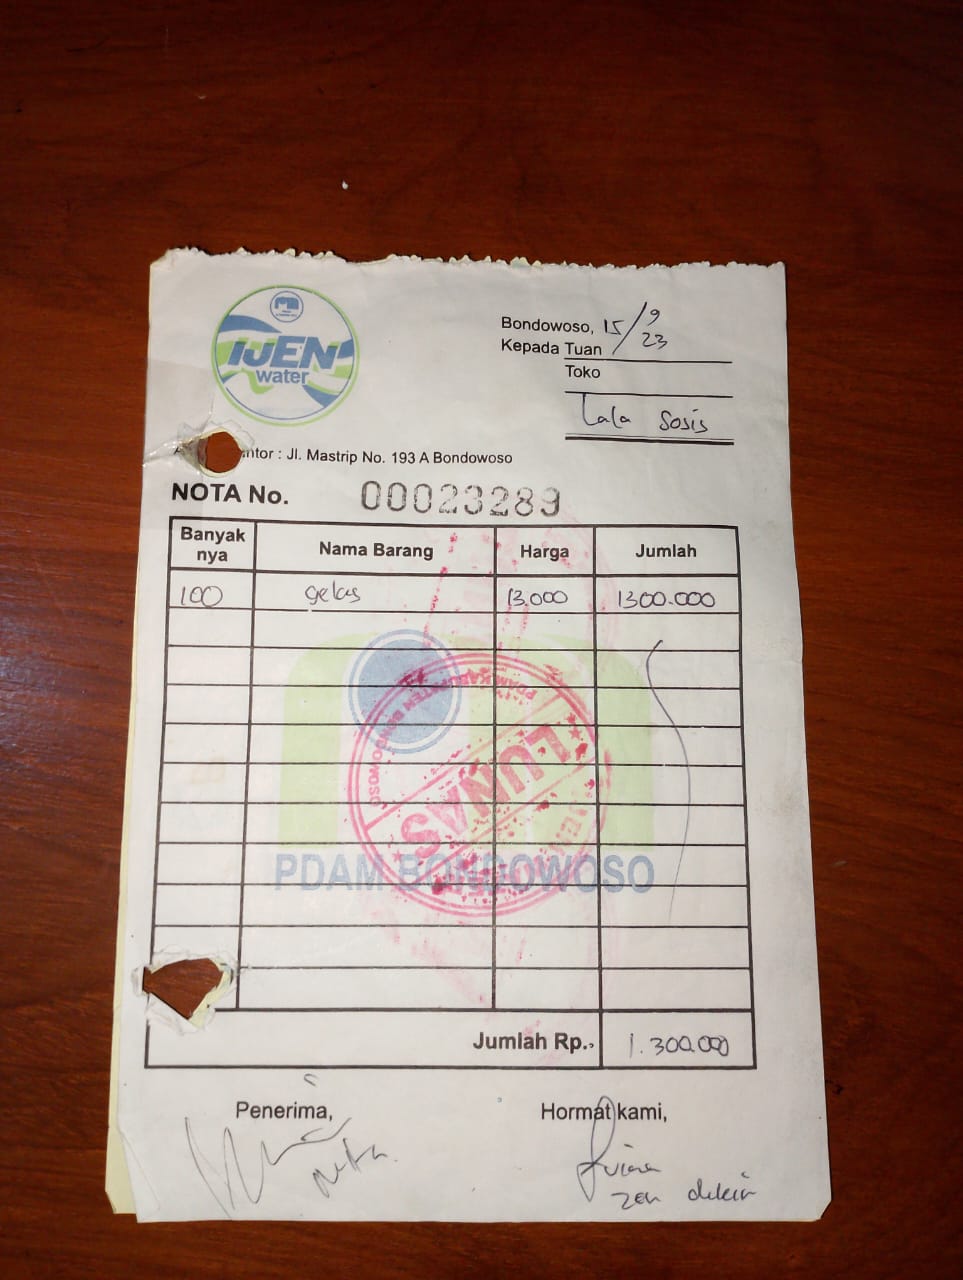 IJEN
water
Bondowoso, 15/9/23
Kepada Tuan
Toko
Lala Sosis
: Jl. Mastrip No. 193 A Bondowoso
NOTA No. 00023289
Banyak nya Nama Barang Harga Jumlah
100 gelas 13.000 1300.000
PDAM KABUPATEN BONDOWOSO
LUNAS
PDAM BONDOWOSO
Jumlah Rp.. 1.300.000
Penerima, Hormat kami,